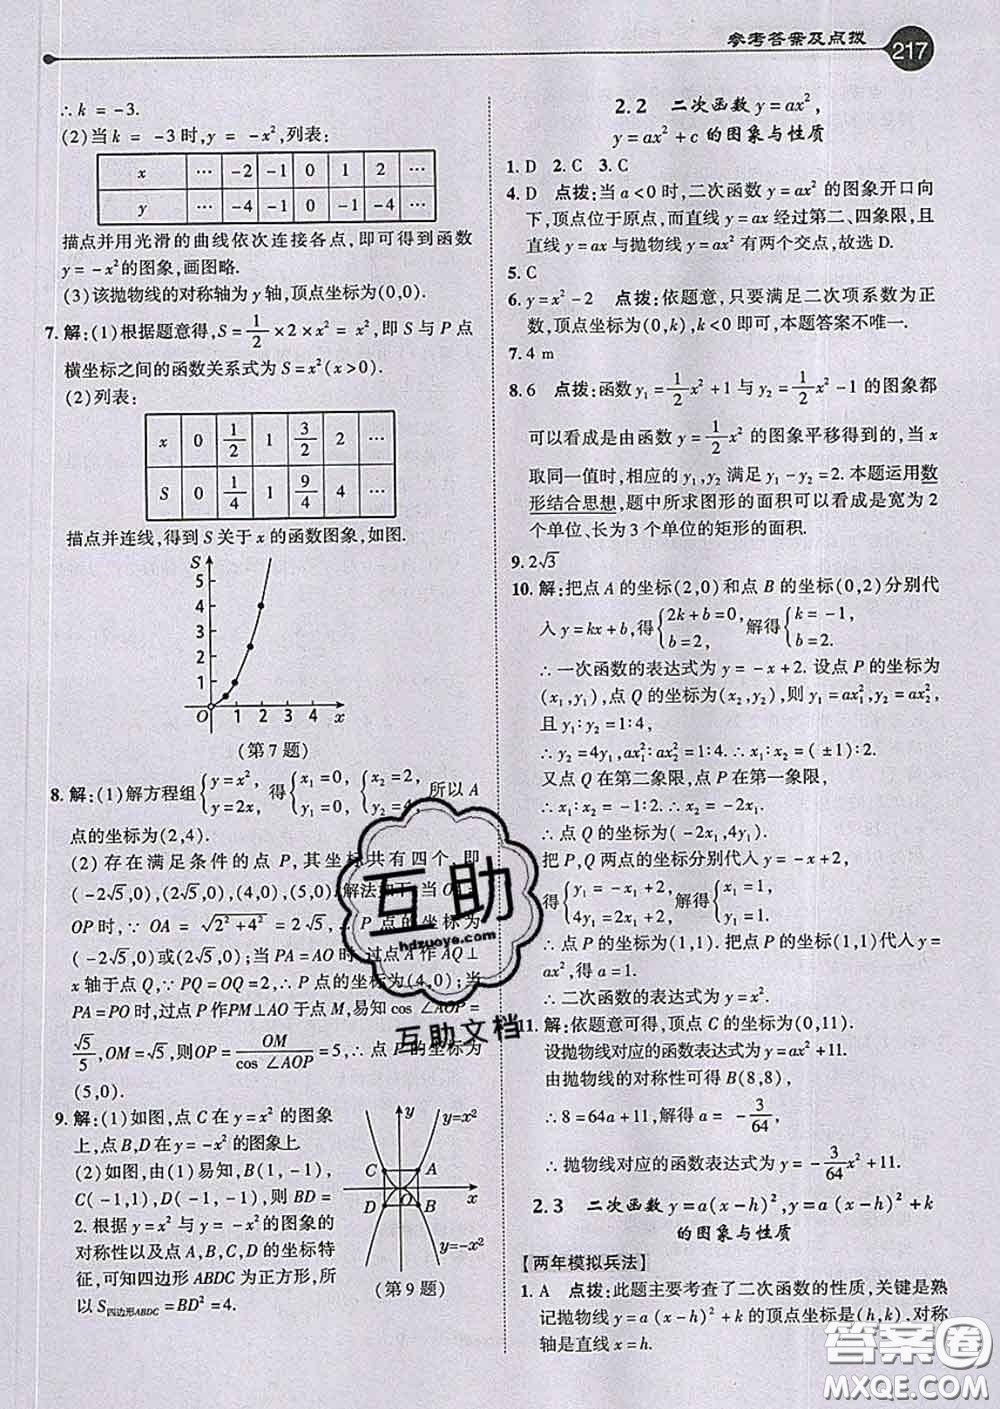 参考答案及点拨
217
∴ k = -3.
(2)当 k = -3 时, y = -x², 列表:
x … -2 -1 0 1 2 …
y … -4 -1 0 -1 -4 …
描点并用光滑的曲线依次连接各点,即可得到函数
y = -x²的图象,画图略.
(3)该抛物线的对称轴为 y 轴,顶点坐标为(0,0).
7. 解:(1)根据题意得, S = 1/2 × 2 × x² = x², 即 S 与 P 点
横坐标之间的函数关系式为 S = x²(x>0).
(2)列表:
x 0 1/2 1 3/2 2 …
S 0 1/4 1 9/4 4 …
描点并连线,得到 S 关于 x 的函数图象,如图.
S
5
4
3
2
1
O 1 2 3 4 x
(第 7 题)
8. 解:(1)解方程组{y = x², y = 2x, 得{x₁ = 0, y₁ = 0, {x₂ = 2, y₂ = 4, 所以 A
点的坐标为(2,4).
(2)存在满足条件的点 P,其坐标共有四个,即
(-2√5,0),(2√5,0),(4,0),(5,0).解法如下:当 OA =
OP 时, ∵ OA = √(2²+4²) = 2√5, ∴ P 点的坐标为
(-2√5,0)或(2√5,0);当 PA = AO 时,过点 A 作 AQ⊥
x 轴于点 Q, ∵ PQ = OQ = 2, ∴ P 点的坐标为(4,0);当
PA = PO 时,过点 P 作 PM⊥AO 于点 M,易知 cos ∠AOP =
√5/5, OM = √5, 则 OP = OM/cos ∠AOP = 5, ∴ 点 P 的坐标为
(5,0).
9. 解:(1)如图,点 C 在 y = x² 的图象
上,点 B,D 在 y = -x² 的图象上.
(2)如图,由(1)易知, B(1,-1),
C(-1,1), D(-1,-1), 则 BD =
2. 根据 y = x² 与 y = -x² 的图象的
对称性以及点 A,B,C,D 的坐标特
征,可知四边形 ABDC 为正方形,所
以 S四边形ABDC = BD² = 4.
y y=x²
C A
O x
D B
y=-x²
(第 9 题)
2.2 二次函数 y = ax²,
y = ax² + c 的图象与性质
1. D 2. C 3. C
4. D 点拨:当 a<0 时,二次函数 y = ax² 的图象开口向
下,顶点位于原点,而直线 y = ax 经过第二、四象限,且
直线 y = ax 与抛物线 y = ax² 有两个交点,故选 D.
5. C
6. y = x² - 2 点拨:依题意,只要满足二次项系数为正
数,顶点坐标为(0,k),k<0 即可,本题答案不唯一.
7. 4 m
8. 6 点拨:函数 y₁ = 1/2 x² + 1 与 y₂ = 1/2 x² - 1 的图象都
可以看成是由函数 y = 1/2 x² 的图象平移得到的,当 x
取同一值时,相应的 y₁,y₂ 满足 y₁ - y₂ = 2. 本题运用数
形结合思想,题中所求图形的面积可以看成是宽为 2
个单位、长为 3 个单位的矩形的面积.
9. 2√3
10. 解:把点 A 的坐标(2,0)和点 B 的坐标(0,2)分别代
入 y = kx + b, 得{2k + b = 0, b = 2, 解得{k = -1, b = 2.
∴ 一次函数的表达式为 y = -x + 2. 设点 P 的坐标为
(x₁,y₁),点 Q 的坐标为(x₂,y₂),则 y₁ = ax₁², y₂ = ax₂²,
且 y₁:y₂ = 1:4.
∴ y₂ = 4y₁, ax₁²:ax₂² = 1:4. ∴ x₁:x₂ = (±1):2.
又点 Q 在第二象限,点 P 在第一象限,
∴ x₁:x₂ = -1:2. ∴ x₂ = -2x₁.
∴ 点 Q 的坐标为(-2x₁,4y₁).
把 P,Q 两点的坐标分别代入 y = -x + 2,
得{y₁ = -x₁ + 2, 4y₁ = 2x₁ + 2, 解得{x₁ = 1, y₁ = 1.
∴ 点 P 的坐标为(1,1). 把点 P 的坐标(1,1)代入 y =
ax², 得 a = 1.
∴ 二次函数的表达式为 y = x².
11. 解:依题意可得,顶点 C 的坐标为(0,11).
设抛物线对应的函数表达式为 y = ax² + 11.
由抛物线的对称性可得 B(8,8),
∴ 8 = 64a + 11, 解得 a = -3/64,
∴ 抛物线对应的函数表达式为 y = -3/64 x² + 11.
2.3 二次函数 y = a(x-h)², y = a(x-h)² + k
的图象与性质
【两年模拟兵法】
1. A 点拨:此题主要考查了二次函数的性质,关键是熟
记抛物线 y = a(x-h)² + k 的顶点坐标是(h,k),对称
轴是直线 x = h.
互助
hdzuoye.com
互助文档
答案圈
MXQE.COM